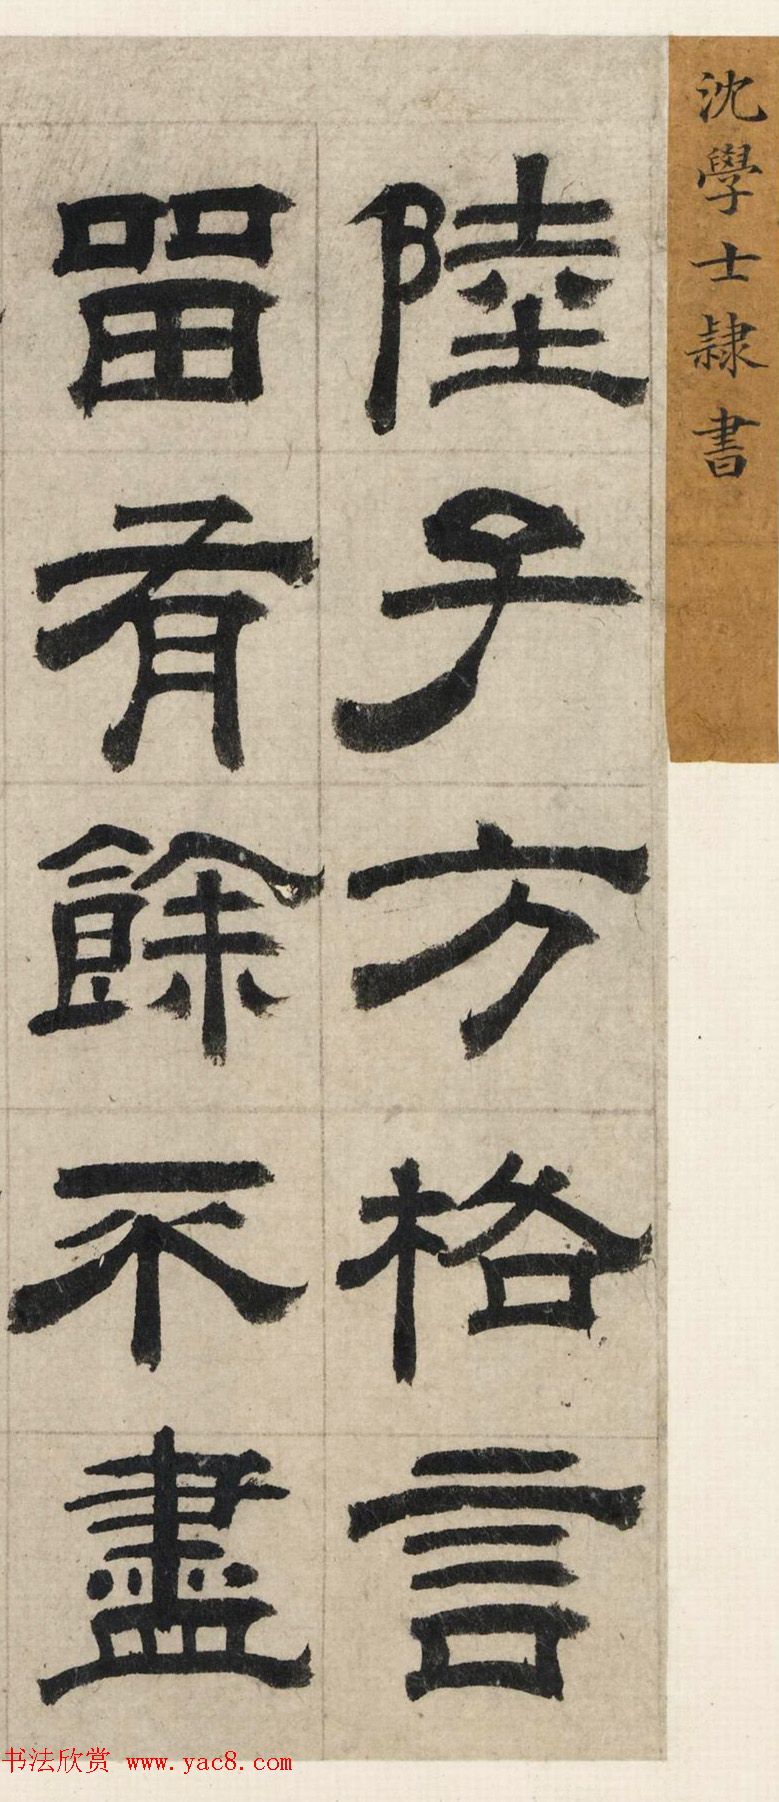 沈學士隸書
陸子方格言
畱有餘不盡
书法欣赏 www.yac8.com